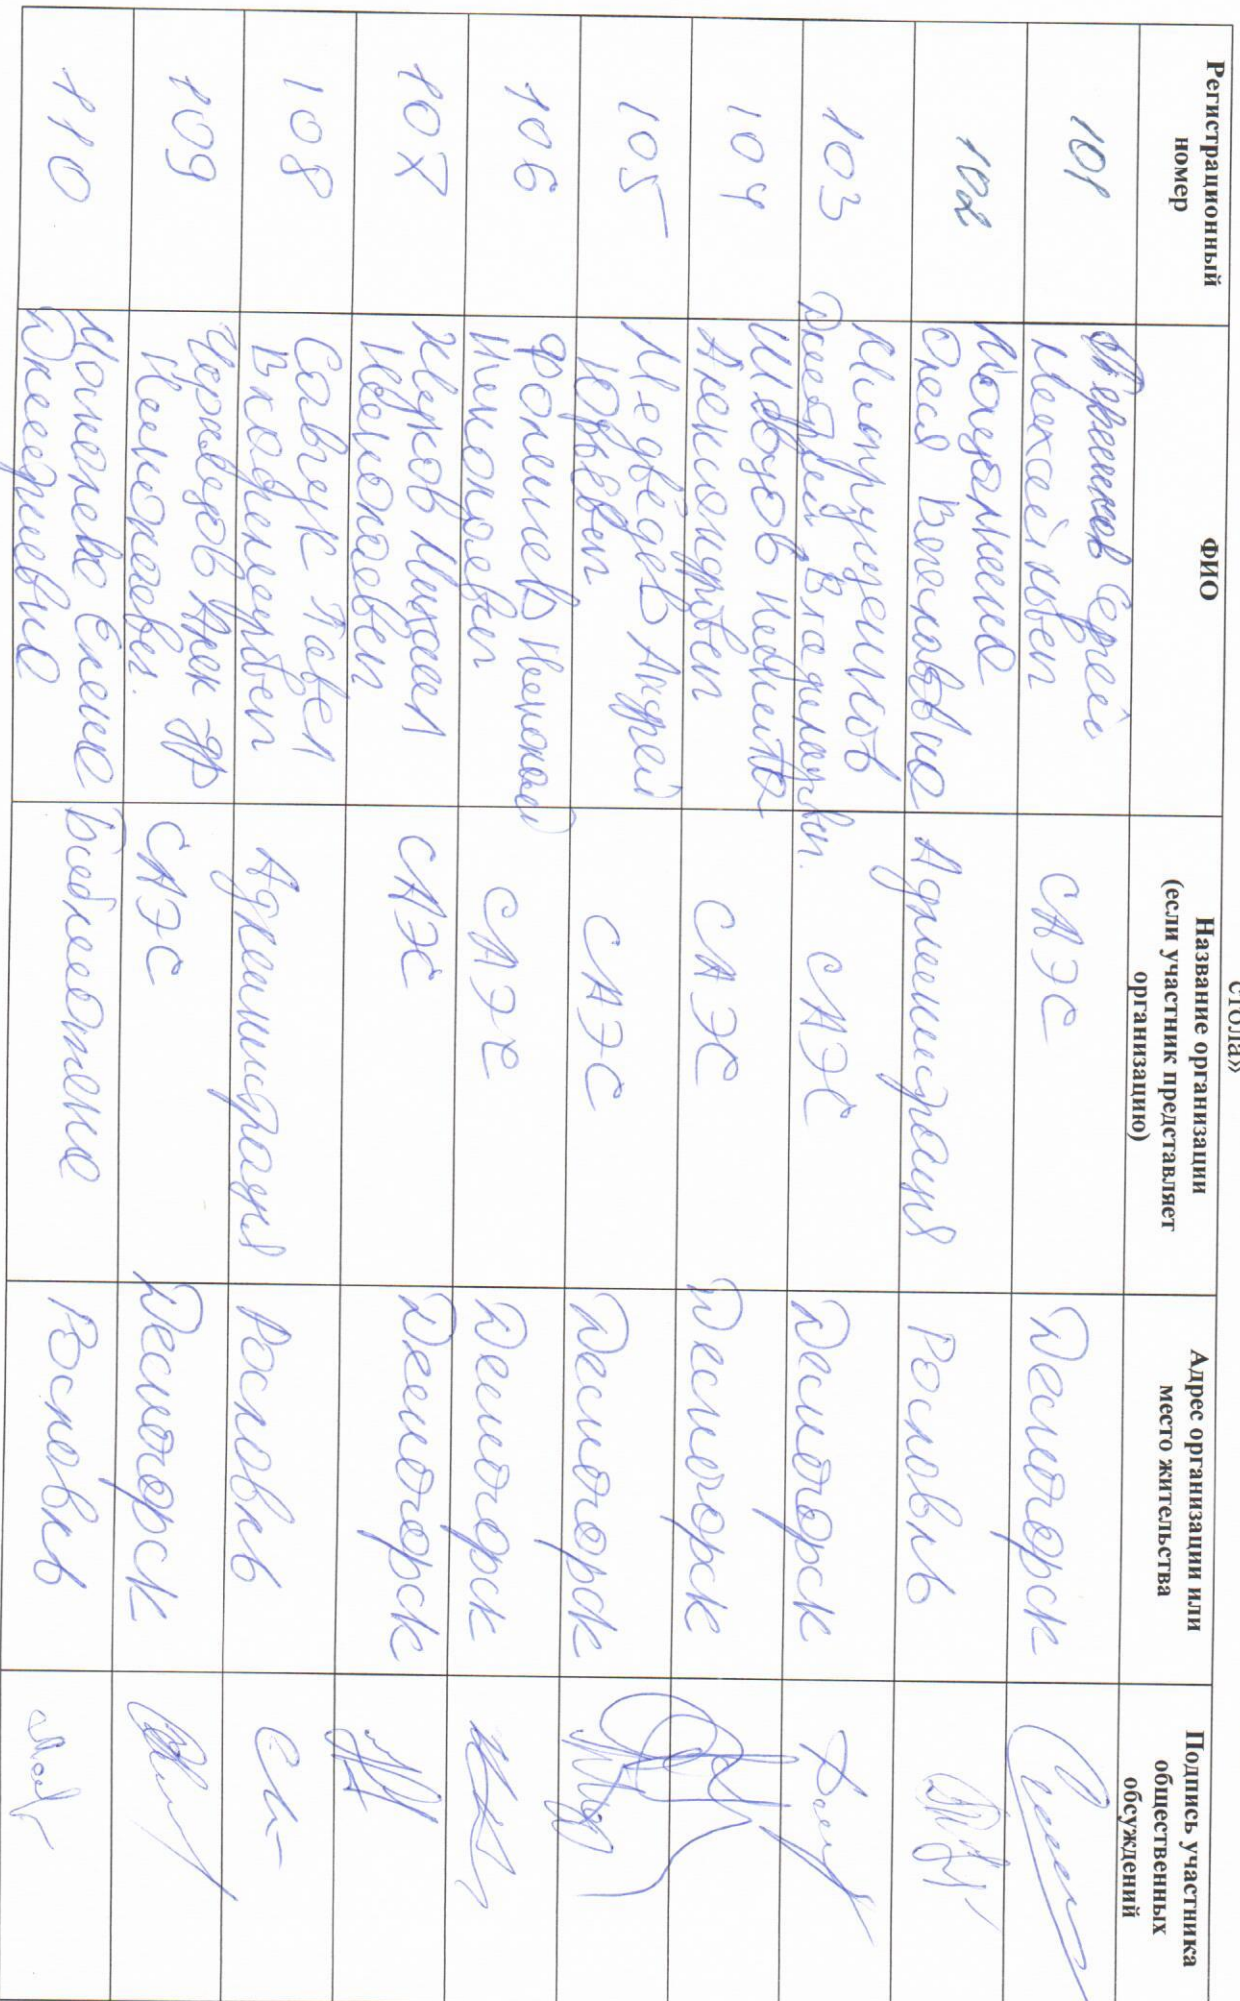 стола»
Регистрационный номер
ФИО
Название организации
(если участник представляет
организацию)
Адрес организации или
место жительства
Подпись участника
общественных
обсуждений
101
Сергей
Михайлович
САЭС
Десногорск
102
Олеся Витальевна
Администрация
Рославль
103
Дмитрий Владимирович.
САЭС
Десногорск
104
Швецов Никита
Александрович
САЭС
Десногорск
105
Медведев Андрей
Юрьевич
САЭС
Десногорск
106
Николай
Николаевич
САЭС
Десногорск
107
Жуков Михаил
Николаевич
САЭС
Десногорск
108
Савчук Павел
Владимирович
Администрация
Рославль
109
Николаевич.
САЭС
Десногорск
110
Елена
Дмитриевна
Библиотека
Рославль